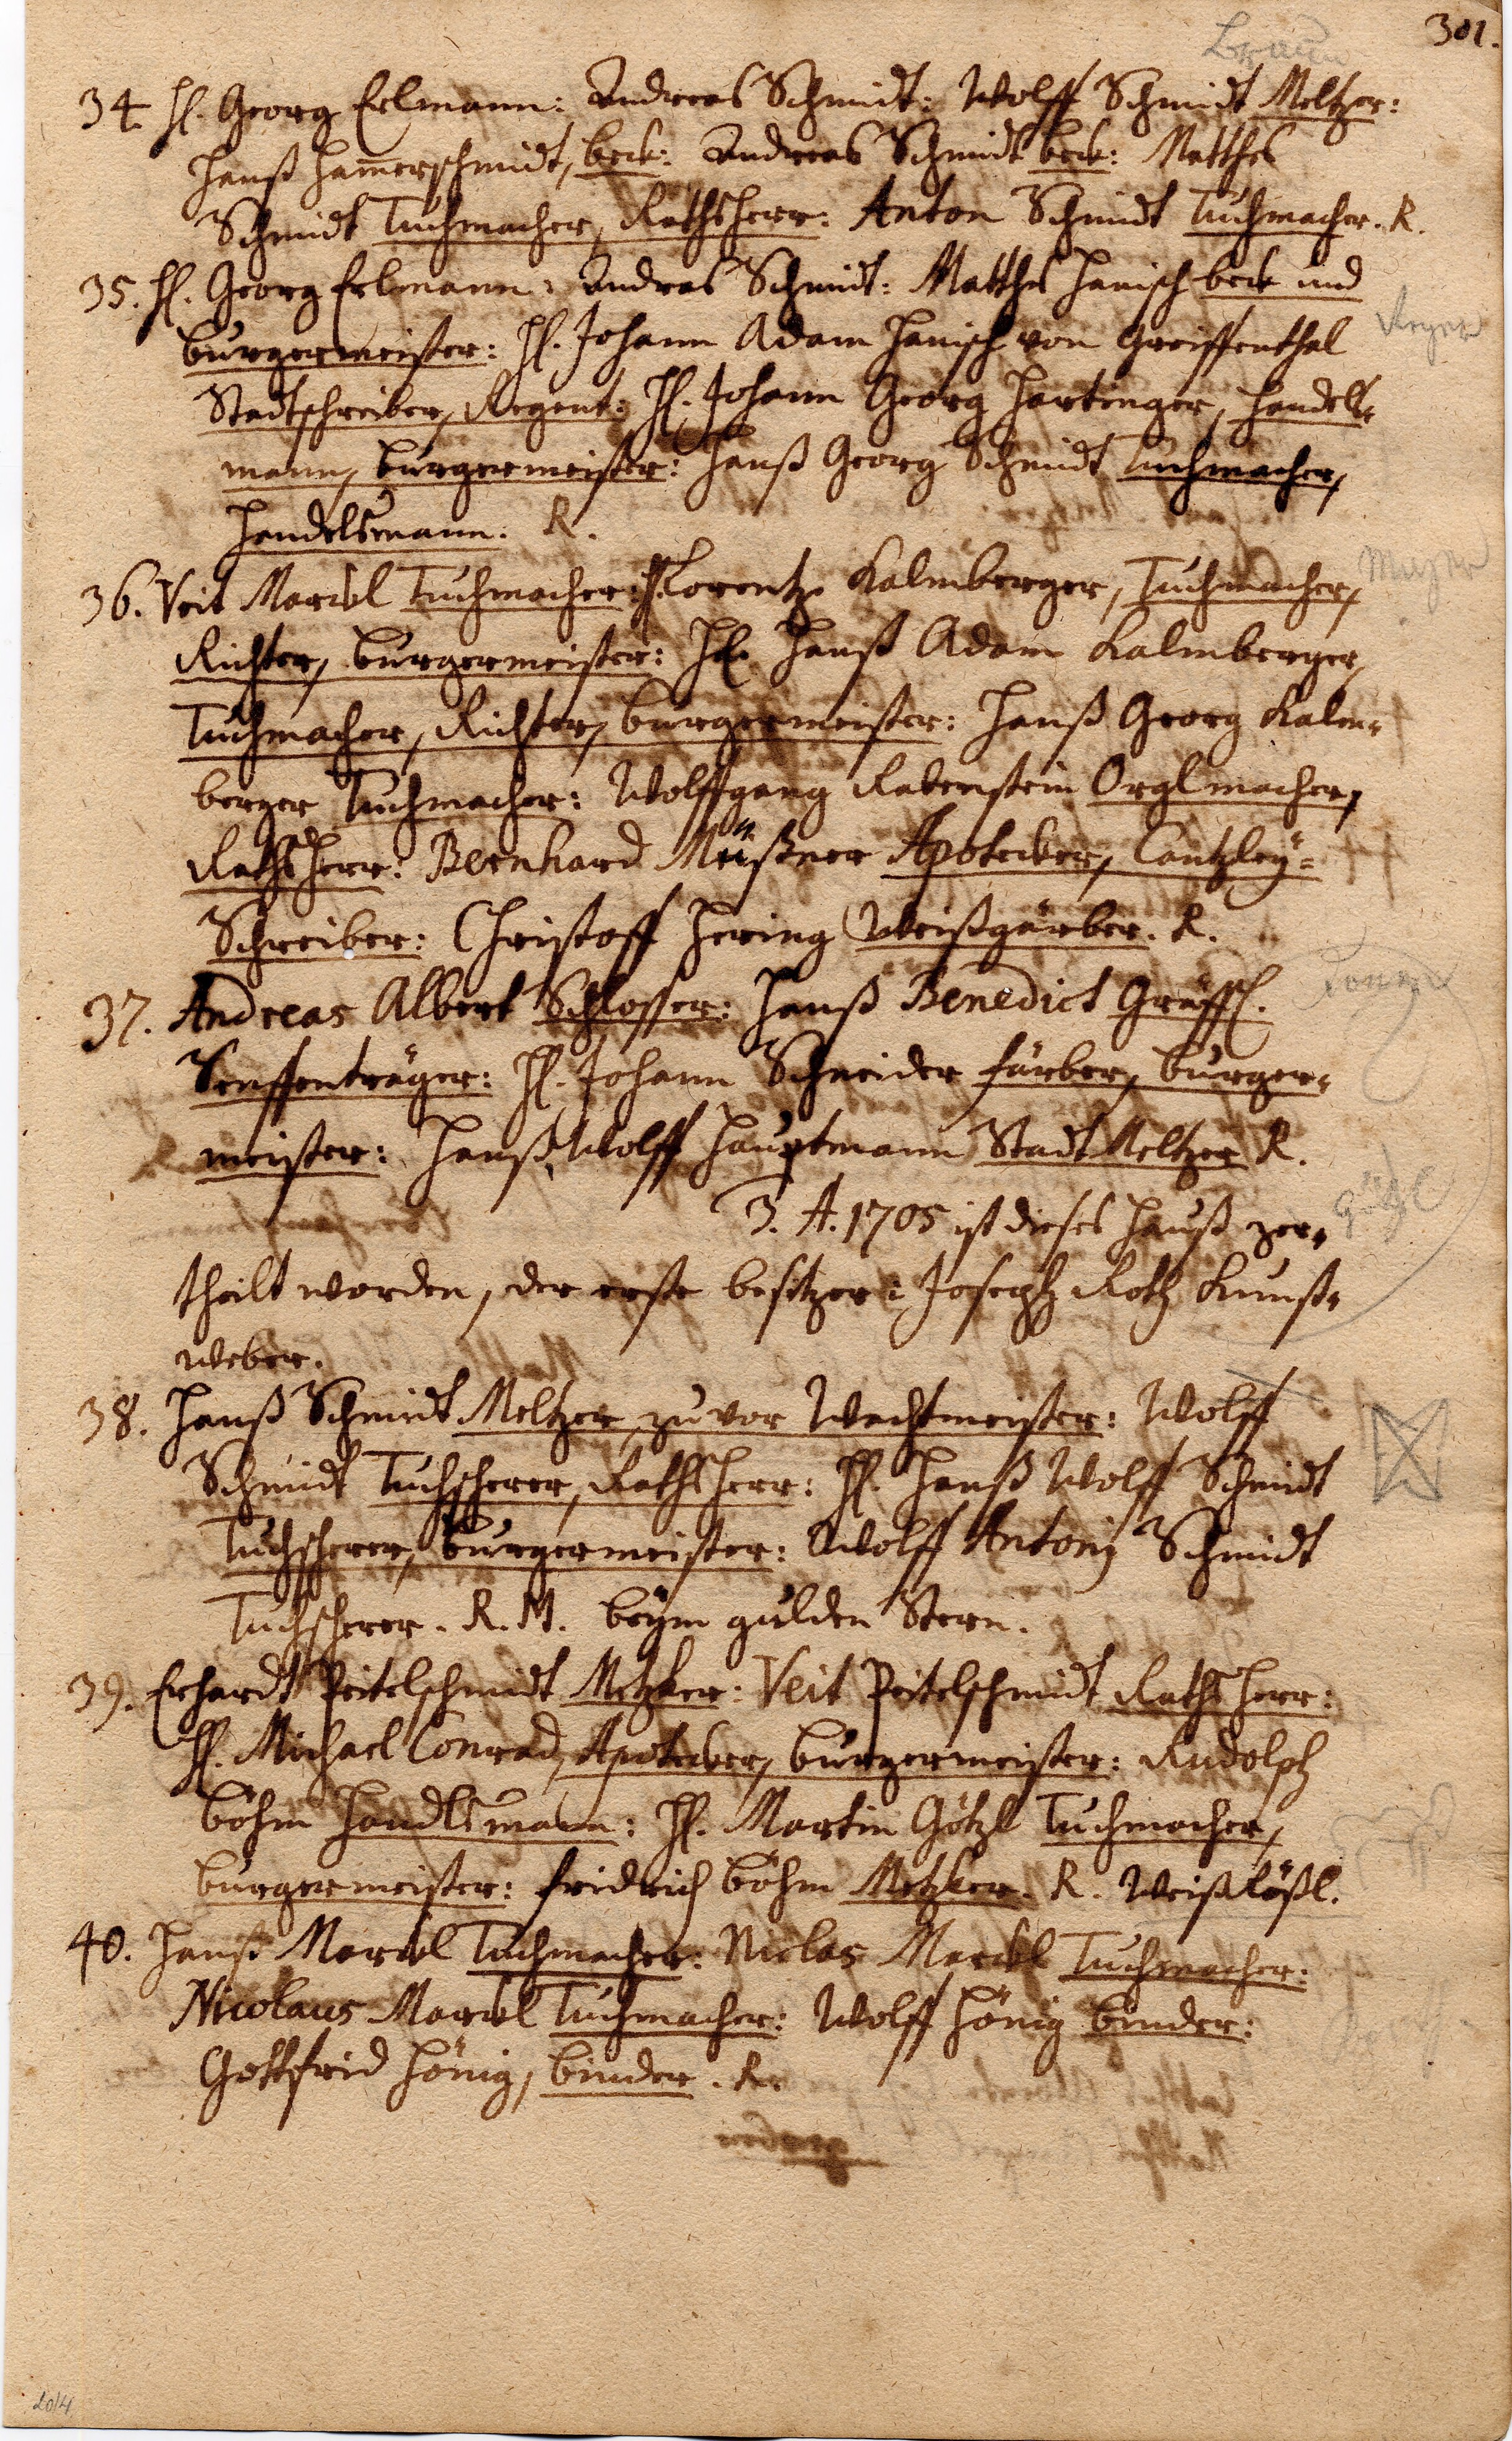 301.
Braun
34. H. Georg Erlmann: Andreas Schmidt: Wolff Schmidt Meltzer:
Hanß Ham̄erschmidt, beck: Andreas Schmidt beck: Matthes
Schmidt Tuchmacher, Rathsherr: Anton Schmidt Tuchmacher. R.
35. H. Georg Erlmann: Andreas Schmidt: Matthes Hanisch beck und
burgermeister: H. Johann Adam Hanisch von Greiffenthal
Stadtschreiber, Regent: H. Johann Georg Hartinger, Handels-
mann, burgermeister: Hanß Georg Schmidt Tuchmacher,
Handelsmann. R.
36. Veit Marckl Tuchmacher: H. Lorentz Kalmberger, Tuchmacher,
Mayer
Richter, burgermeister: H. Hanß Adam Kalmberger,
Tuchmacher, Richter, burgermeister: Hanß Georg Kalm-
berger Tuchmacher: Wolffgang Rabenstein Orglmacher,
RathsHerr: Bernhard Müßner Apotecker, Cantzleÿ-
Schreiber: Christoff Hering Weißgärber. R.
37. Andreas Albert Schlosser: Hanß Benedict Gräffl.
Senfftenträger: H. Johann Schneider färber, burger-
meister: Hanß Wolff Hauptmann Stadt Meltzer R.
3. A. 1705 ist dieses Hauß zer-
Götzl
theilt worden, der erste besitzer: Joseph Roth Kunst-
weber.
38. Hanß Schmidt Meltzer, zuvor Wachtmeister: Wolff
Schmidt Tuchscherer, RathsHerr: H. Hanß Wolff Schmidt
Tuchscherer, burgermeister: Wolff Antonj Schmidt
Tuchscherer. R. M. beÿm gulden Stern.
39. Erhardt Peitelschmidt Metzker: Veit Peitelschmidt RathsHerr:
H. Michael Conrad, Apotecker, burgermeister: Rudolph
böhm Handlsmann: H. Martin Götzl Tuchmacher,
burgermeister: fridrich böhm Metzker. R. Weiß Rößl.
40. Hanß Marckl Tuchmacher: Niclas Marckl Tuchmacher:
Nicolaus Marckl Tuchmacher: Wolff Hönig binder:
Gottfrid Hönig, binder. R.